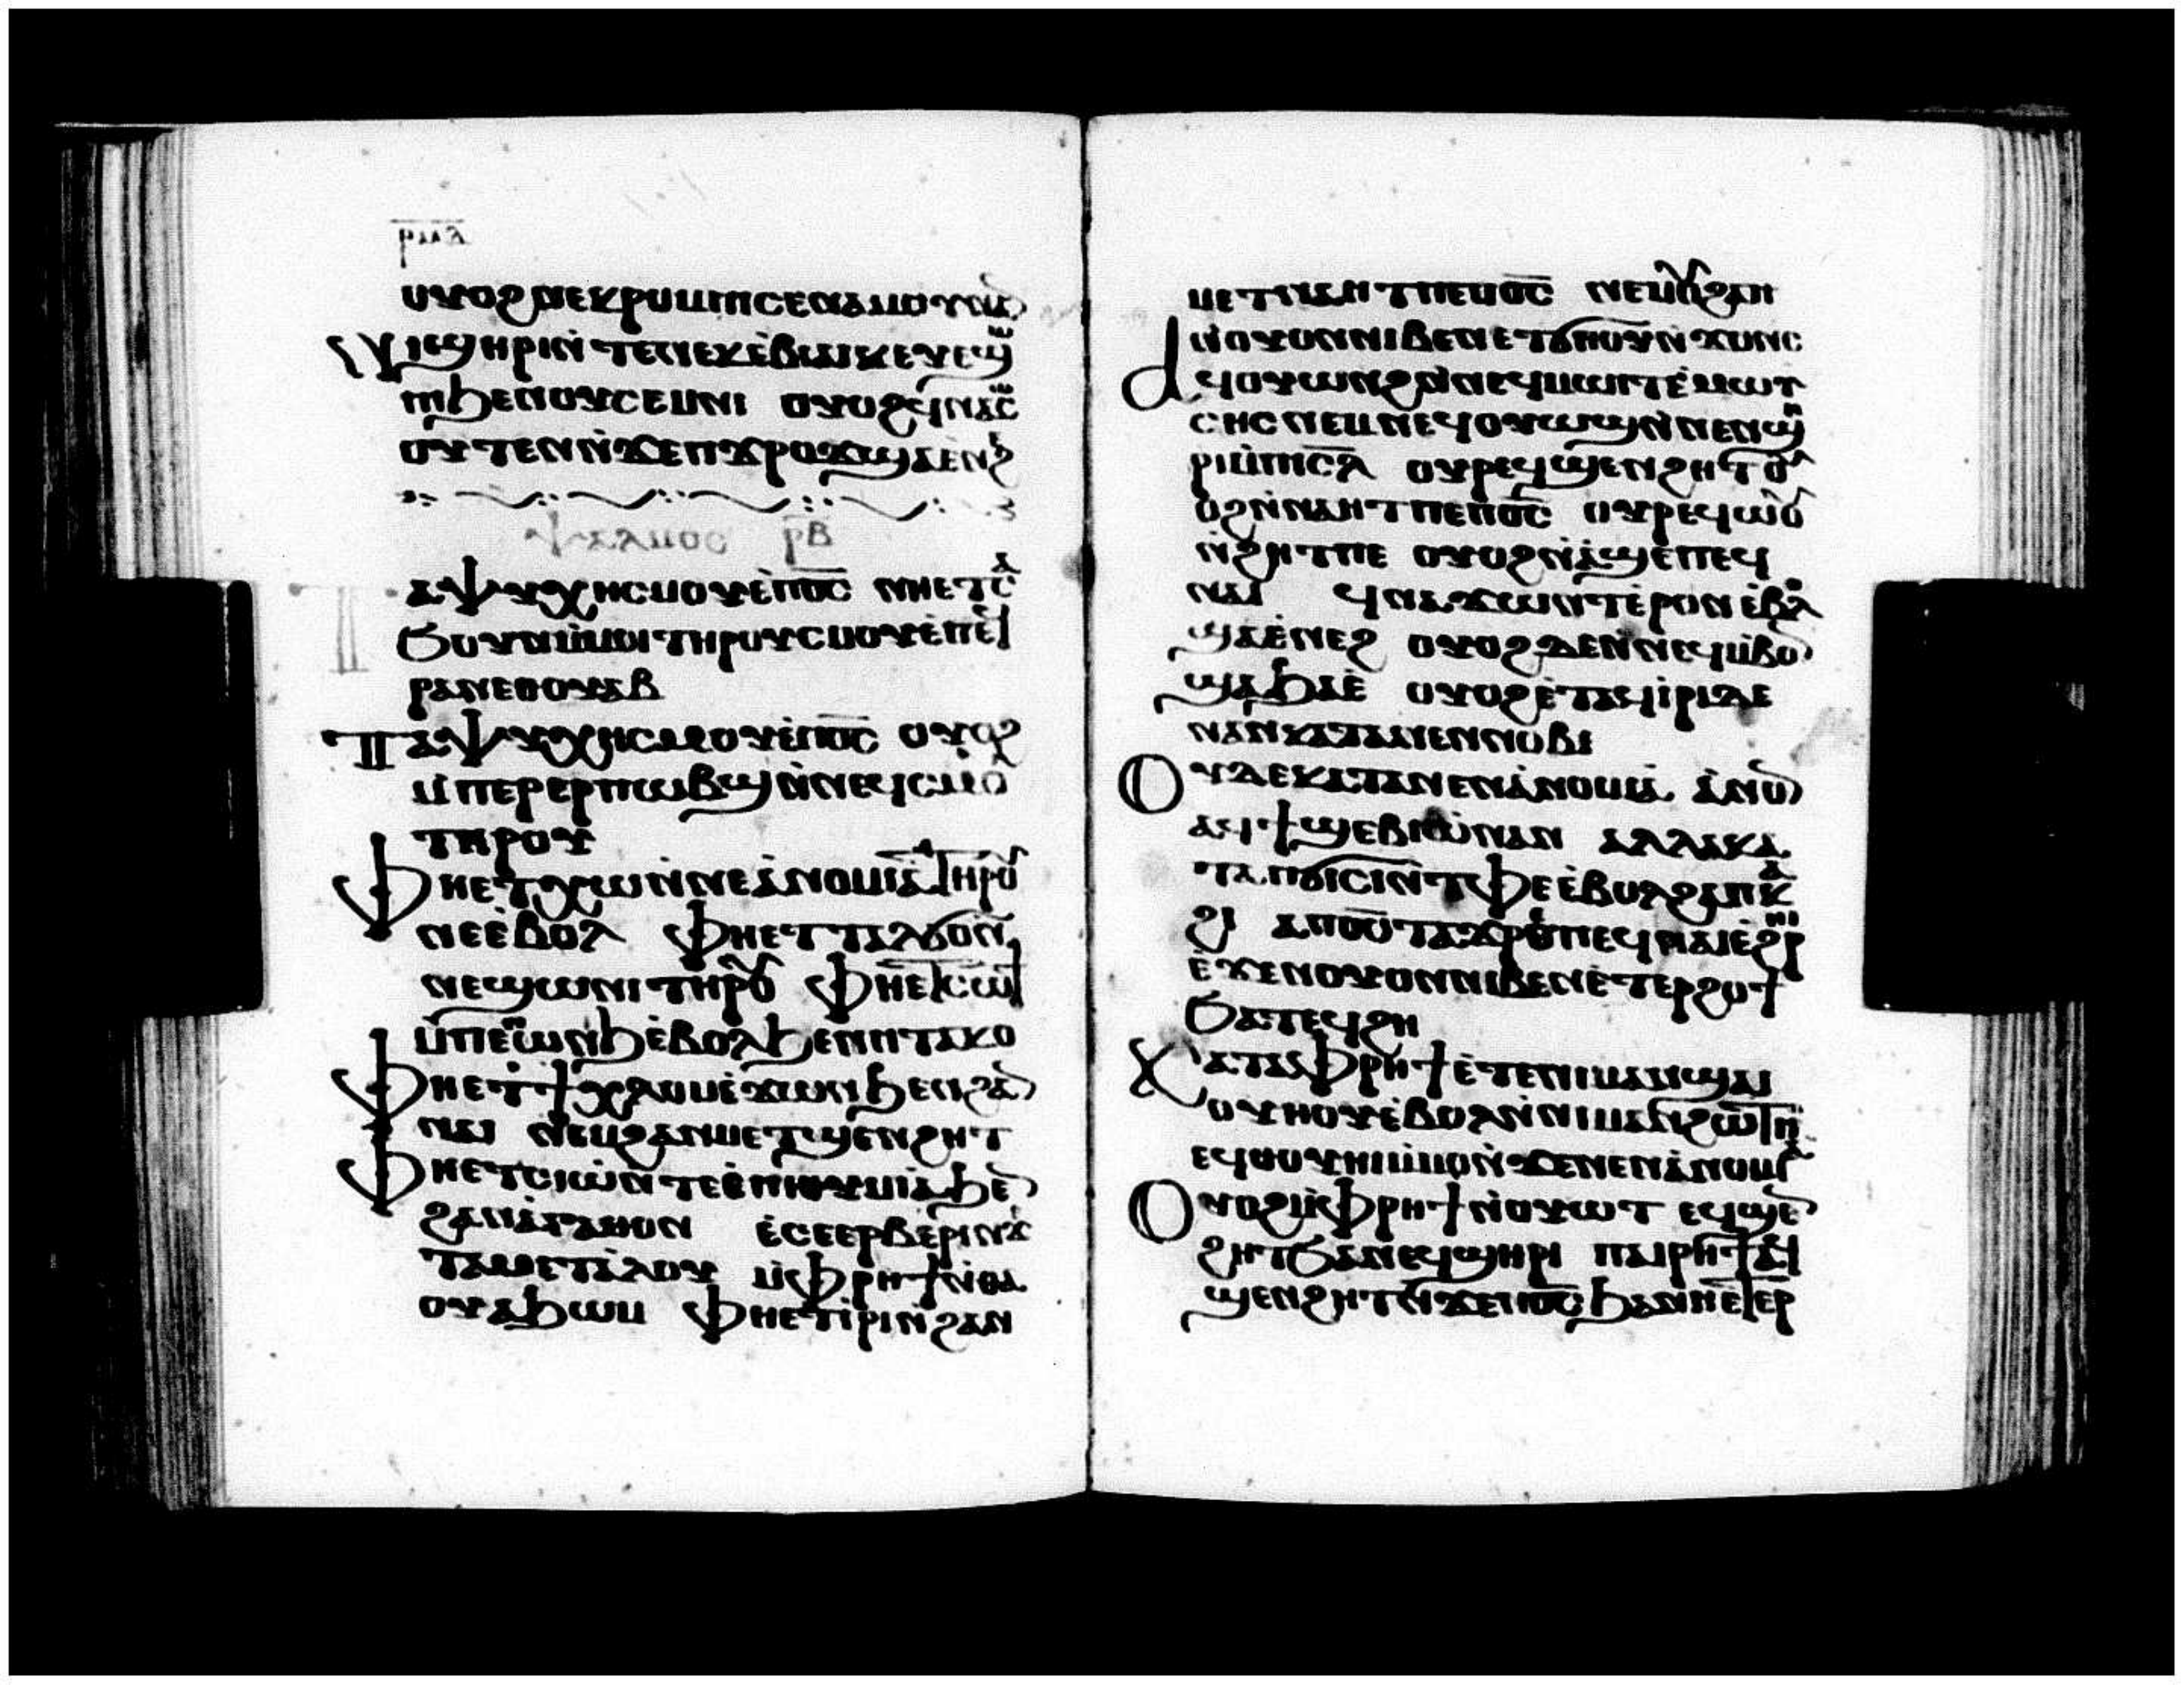 ⲣⲙⲃ
ⲟⲩⲟϩ ⲛⲉⲕⲣⲟⲙⲡⲓ ⲥⲉⲛⲁⲙⲟⲩⲛⲕ
ⲛⲓϣⲏⲣⲓ ⲛ̀ⲧⲉ ⲛⲉⲕⲉ̀ⲃⲓⲁⲓⲕ ⲉⲩⲉϣⲱ
ⲡⲓ ϧⲉⲛ ⲟⲩⲥⲉⲙⲛⲓ ⲟⲩⲟϩ ϥⲛⲁⲥⲱ
ⲟⲩⲧⲉⲛ ⲛ̀ϫⲉ ⲡⲭⲣⲟϫ ϣⲁⲉ̀ⲛϩ
ⲯⲁⲗⲙⲟⲥ ⲣ̅ⲃ
ⲧⲁⲯⲩⲭⲏ ⲥⲙⲟⲩ ⲉ̀ⲡⲟ̅ⲥ̅ ⲛⲏⲉⲧⲥⲁ
ϧⲟⲩⲛ ⲙ̀ⲙⲟⲓ ⲧⲏⲣⲟⲩ ⲥⲙⲟⲩ ⲉ̀ⲡⲉϥ
ⲣⲁⲛ ⲉⲑⲟⲩⲁⲃ
ⲧⲁⲯⲩⲭⲏ ⲥⲙⲟⲩ ⲉ̀ⲡⲟ̅ⲥ̅ ⲟⲩⲟϩ
ⲙ̀ⲡⲉⲣⲉⲣⲡⲱⲃϣ ⲛ̀ⲛⲉϥⲥⲙⲟ
ⲧⲏⲣⲟⲩ
ⲫⲏⲉⲧⲭⲱ ⲛ̀ⲛⲉⲁ̀ⲛⲟⲙⲓⲁ ⲧⲏⲣⲟⲩ
ⲛⲉ ⲉ̀ⲃⲟⲗ ⲫⲏⲉⲧⲧⲁⲗϭⲟ ⲛ̀
ⲛⲉϣⲱⲛⲓ ⲧⲏⲣⲟⲩ ⲫⲏⲉⲧⲥⲱϯ
ⲙ̀ⲡⲉⲱⲛϧ ⲉ̀ⲃⲟⲗ ϧⲉⲛ ⲡⲧⲁⲕⲟ
ⲫⲏⲉⲧϯⲭⲗⲟⲙ ⲉ̀ϫⲱⲓ ϧⲉⲛ ϩⲁⲛ
ⲛⲁⲓ ⲛⲉⲙ ϩⲁⲛⲙⲉⲧϣⲉⲛϩⲏⲧ
ⲫⲏⲉⲧⲥⲓⲱ̀ ⲛ̀ⲧⲉⲉ̀ⲡⲓⲑⲩⲙⲓⲁ ϧⲉⲛ
ϩⲁⲛⲁ̀ⲅⲁⲑⲟⲛ ⲉ̀ⲥⲉⲉⲣⲃⲉⲣⲓ ⲛ̀ϫⲉ
ⲧⲁⲙⲉⲧⲁ̀ⲗⲟⲩ ⲙ̀ⲫⲣⲏϯ ⲛ̀ⲑⲁ
ⲟⲩⲁϧⲱⲙ ⲫⲏⲉⲧⲓ̀ⲣⲓ ⲛ̀ϩⲁⲛ
ⲙⲉⲧⲛⲁⲏⲧ ⲡⲉ ⲡⲟ̅ⲥ̅ ⲛⲉⲙ ⲟⲩϩⲁⲡ
ⲛ̀ⲟⲩⲟⲛ ⲛⲓⲃⲉⲛ ⲉⲧϭⲏⲟⲩ ⲛ̀ϫⲟⲛⲥ
ⲁϥⲟⲩⲱⲛϩ ⲛ̀ⲛⲉϥⲙⲱⲓⲧ ⲉ̀ⲙⲱⲩ̈
ⲥⲏⲥ ⲛⲉⲙ ⲛⲉϥⲟⲩⲱϣ ⲛ̀ⲛⲉⲛϣⲏ
ⲣⲓ ⲙ̀ⲡⲓⲥ̅ⲗ̅ ⲟⲩⲣⲉϥϣⲉⲛϩⲏⲧ ⲟⲩ
ⲟϩ ⲛ̀ⲛⲁⲏⲧ ⲡⲉ ⲡⲟ̅ⲥ̅ ⲟⲩⲣⲉϥⲱ̀ⲟⲩ
ⲛ̀ϩⲏⲧ ⲡⲉ ⲟⲩⲟϩ ⲛⲁ̀ϣⲉ ⲡⲉϥ
ⲛⲁⲓ ϥⲛⲁϫⲱⲛⲧ ⲉ̀ⲣⲟⲛ ⲉ̀ⲃⲗ
ϣⲁⲉ̀ⲛⲉϩ ⲟⲩⲟϩ ⲇⲉ ⲛ̀ⲛⲉϥⲙ̀ⲃⲟⲛ
ϣⲁ ϧⲁⲉ̀ ⲟⲩⲟϩ ⲉ̀ⲧⲁϥⲓ̀ⲣⲓ ⲇⲉ
ⲛⲁⲛ ⲕⲁⲧⲁ ⲛⲉⲛⲛⲟⲃⲓ
ⲟⲩⲇⲉ ⲕⲁⲧⲁ ⲛⲉⲛⲁ̀ⲛⲟⲙⲓⲁ ⲁⲛ ⲟⲛ
ⲁϥϯϣⲉⲃⲓⲱ̀ ⲛⲁⲛ ⲁⲗⲗⲁ ⲕⲁ
ⲧⲁ ⲡϭⲓⲥⲓ ⲛ̀ⲧⲫⲉ ⲉ̀ⲃⲟⲗ ϩⲁ ⲡⲕⲁ
ϩⲓ ⲁ ⲡⲟ̅ⲥ̅ ⲧⲁϫⲣⲉ ⲡⲉϥⲛⲁⲓ ⲉ̀ϩⲣⲏⲓ
ⲉ̀ϫⲉⲛ ⲟⲩⲟⲛ ⲛⲓⲃⲉⲛ ⲉ̀ⲧⲉⲣϩⲟϯ
ϧⲁⲧⲉϥϩⲏ
ⲕⲁⲧⲁ ⲫⲣⲏϯ ⲉ̀ⲧⲉ ⲛⲓⲙⲁⲛϣⲁⲓ
ⲟⲩⲏⲟⲩ ⲉ̀ⲃⲟⲗ ⲛ̀ⲛⲓⲙⲁⲛϩⲱⲧⲡ
ⲉϥⲟⲩⲏⲟⲩ ⲙ̀ⲙⲟⲛ ⲛ̀ϫⲉ ⲛⲉⲛⲁ̀ⲛⲟⲙⲓⲁ
ⲟⲩⲟϩ ⲙ̀ⲫⲣⲏϯ ⲛ̀ⲟⲩⲱⲧ ⲉϥϣⲉⲛ
ϩⲏⲧ ϧⲁ ⲛⲉϥϣⲏⲣⲓ ⲡⲁⲓⲣⲏϯ ⲁϥ
ϣⲉⲛϩⲏⲧ ⲛ̀ϫⲉ ⲡⲟ̅ⲥ̅ ϧⲁ ⲛⲏⲉⲧⲉⲣ